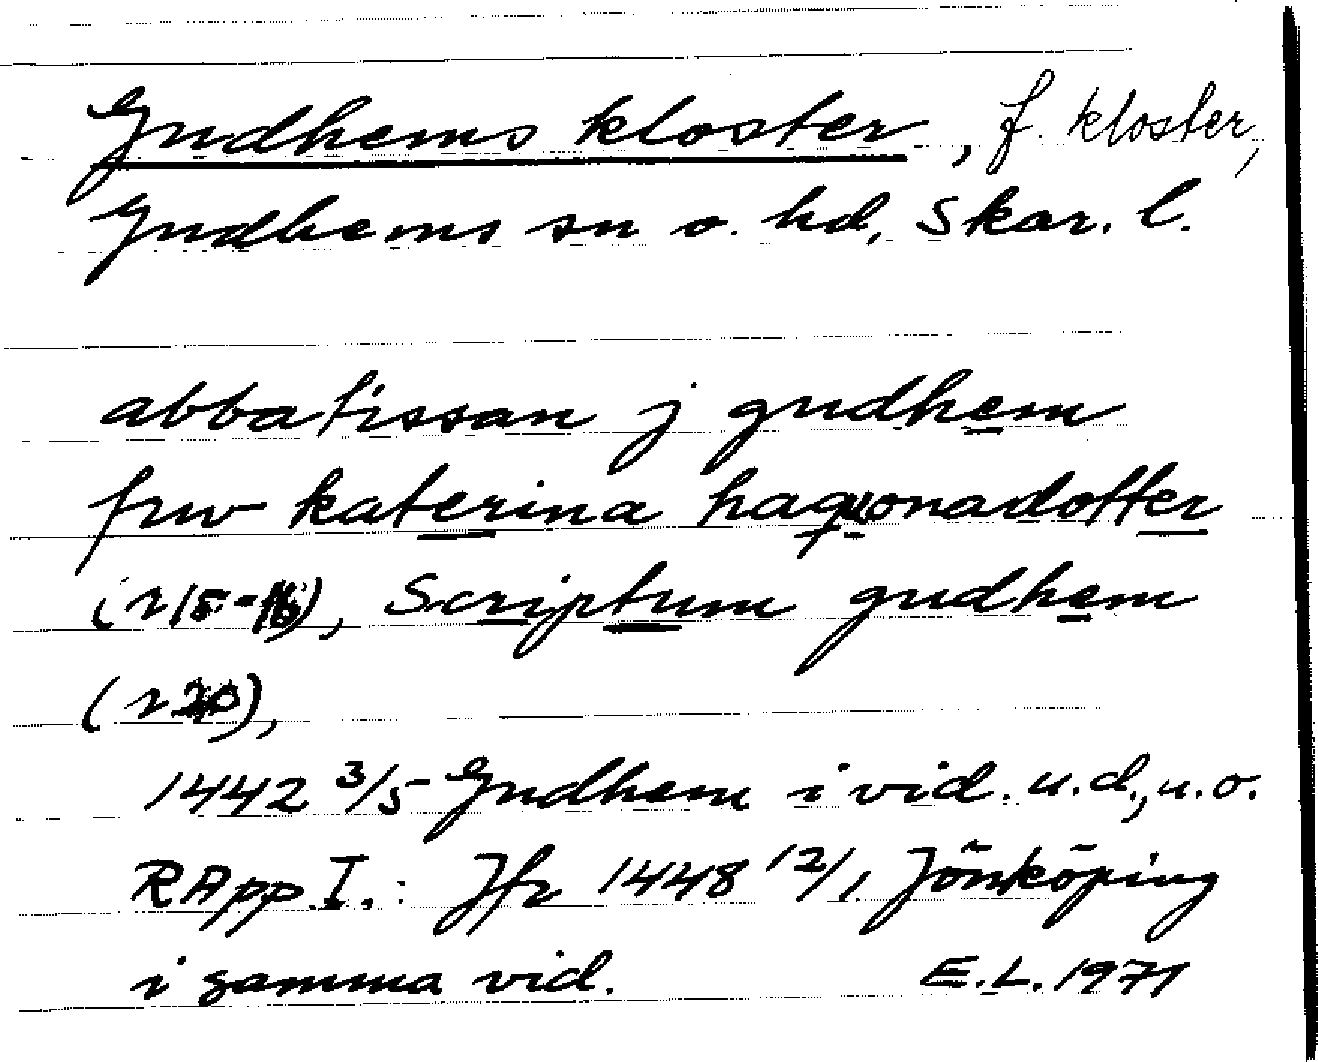 Gudhems kloster, f. kloster,
Gudhems sn o. hd, Skar. l.
abbatissan j gudhem
frw katerina haquonadotter
(r 15-16), Scriptum gudhem
(r 20),
1442 3/5 Gudhem i vid. u.d., u.o.
RApp I. : Jfr 1448 12/1 Jönköping
i samma vid. E.L. 1971